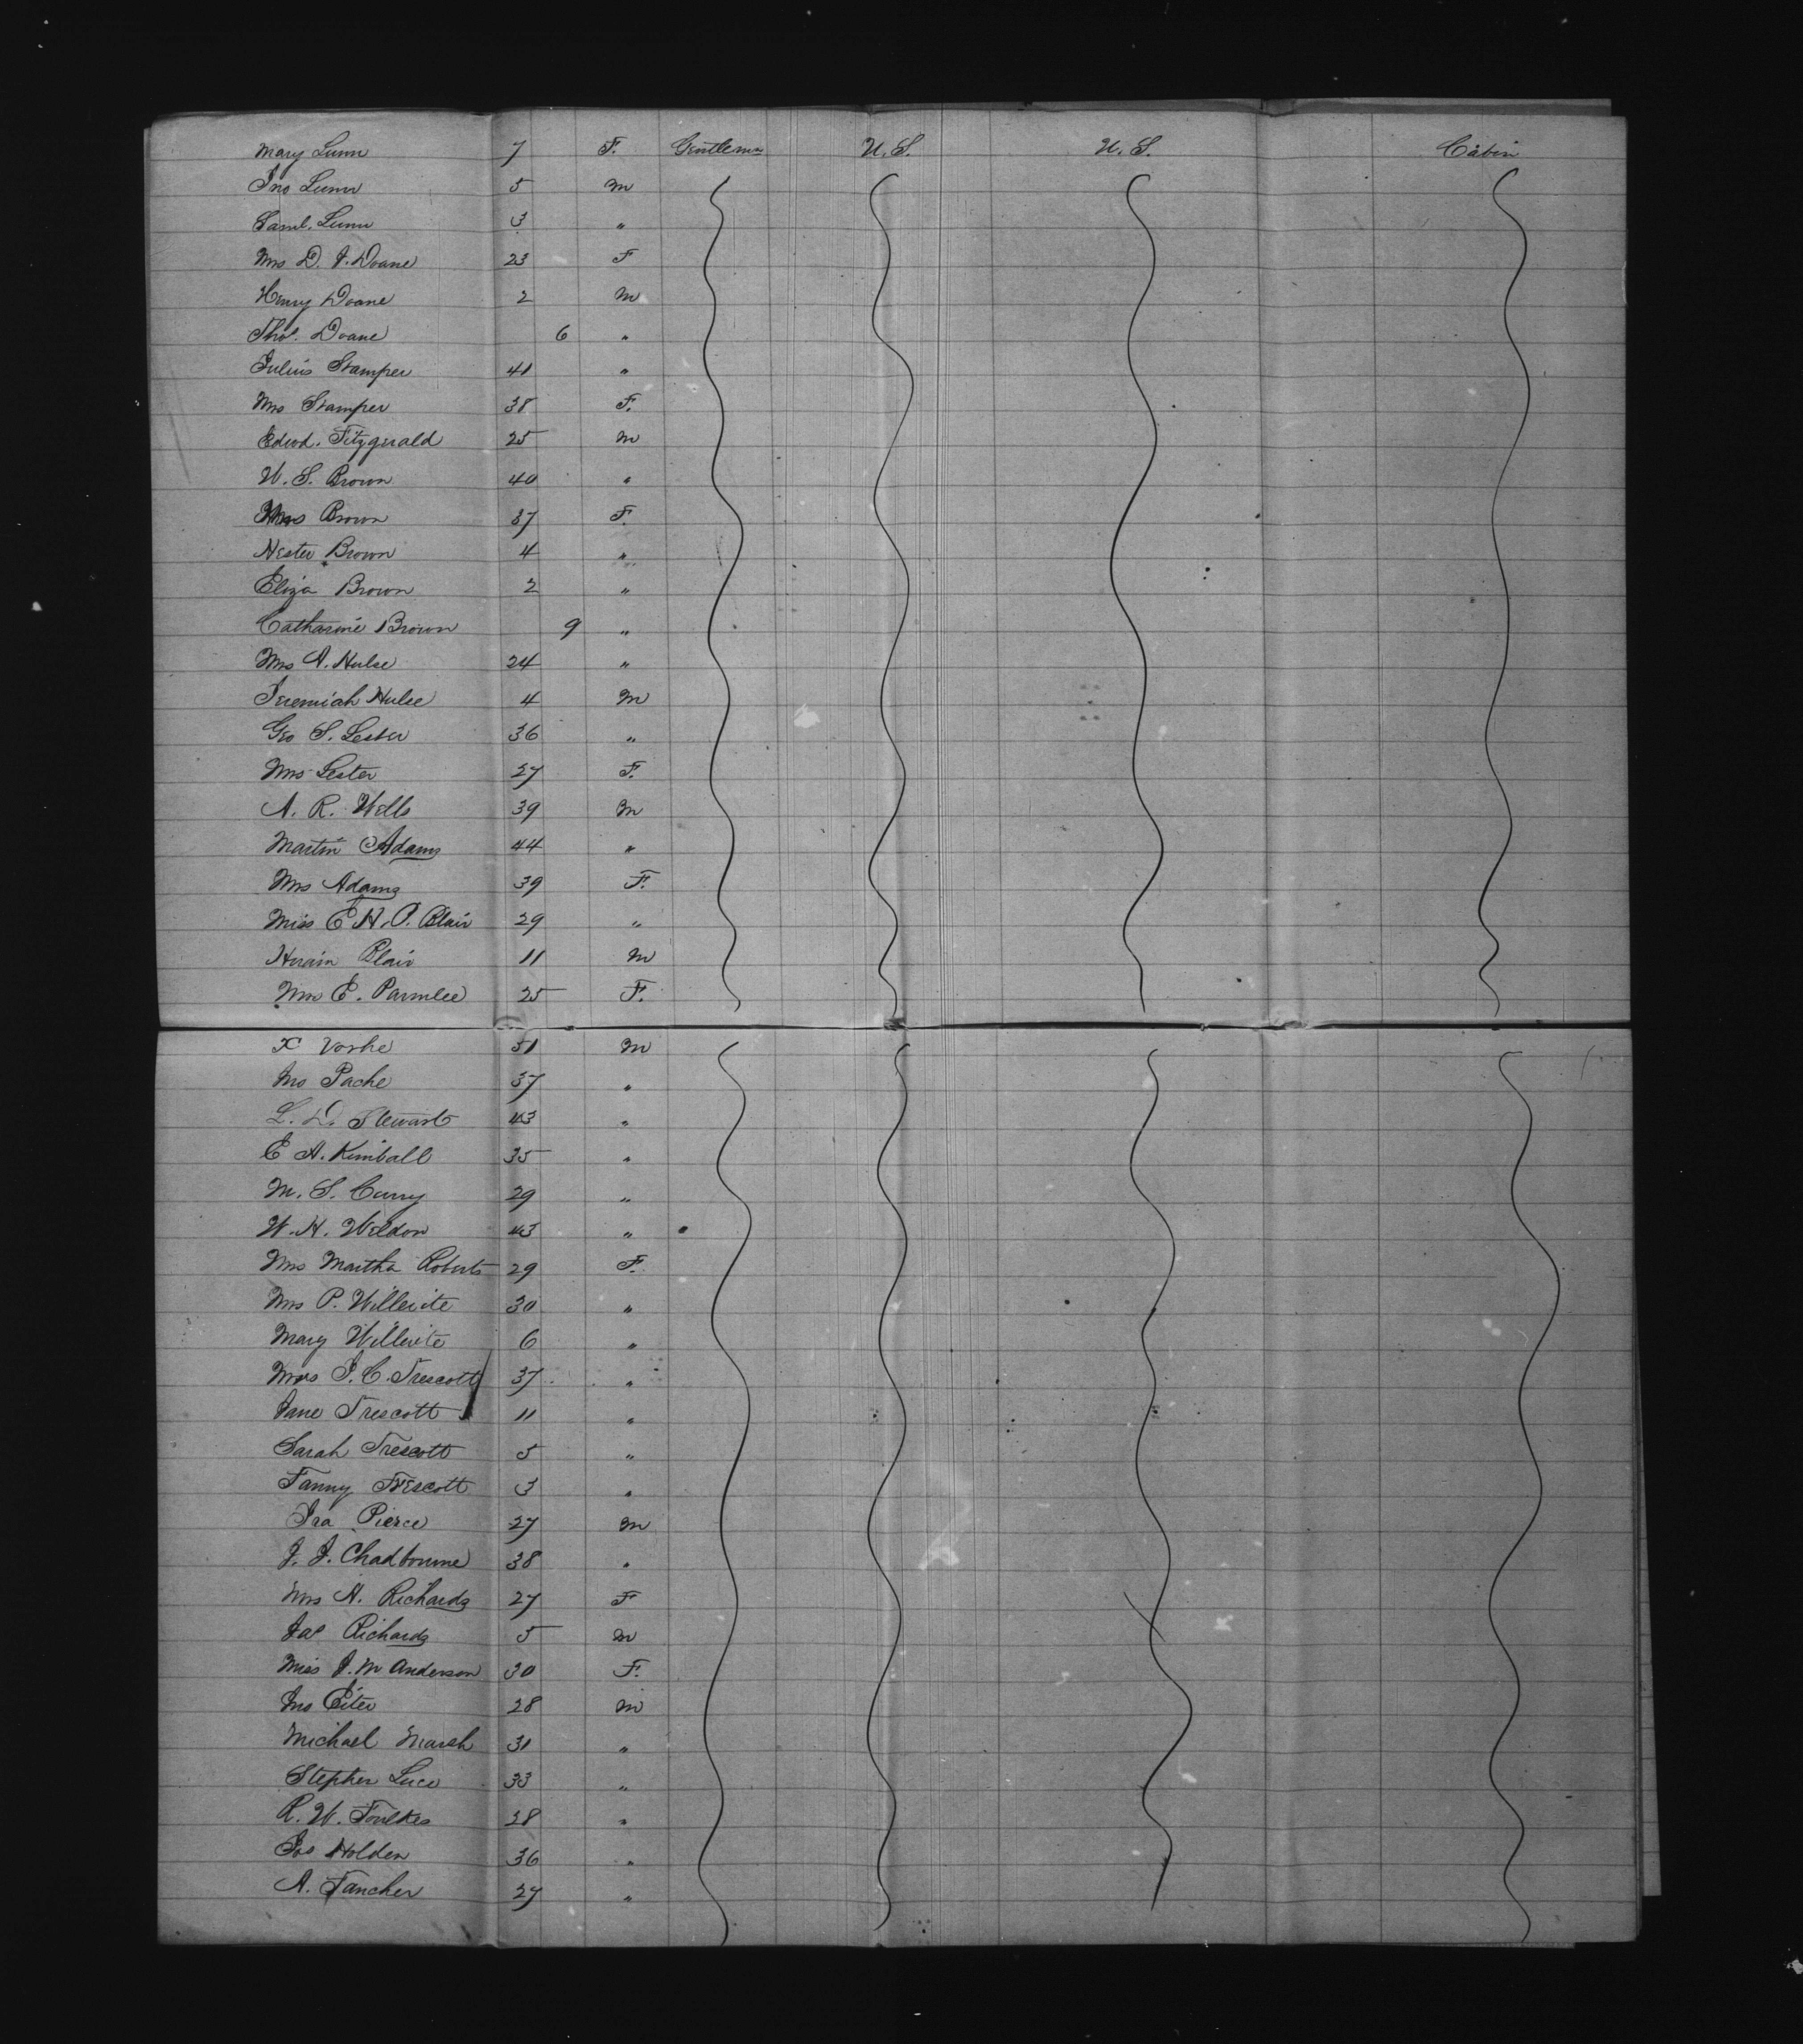 Mary Lunn 7 F. Gentleman U.S. U.S. Cabin
Jno Lunn 5 M
Saml. Lunn 3 "
Mrs D. J. Doane 23 F
Henry Doane 2 M
Thos. Doane 6 "
Julius Stamper 41 "
Mrs Stamper 38 F.
Edwd. Fitzgerald 25 M
W. S. Brown 40 "
Mrs Brown 37 F.
Hester Brown 4 "
Eliza Brown 2 "
Catharine Brown 9 "
Mrs A. Hulse 24 "
Jeremiah Hulse 4 M
Geo S. Lester 36 "
Mrs Lester 27 F.
A. R. Wells 39 M
Martin Adams 44 "
Mrs Adams 39 F.
Miss E H. P. Blair 29 "
Hiram Blair 11 M
Mrs E. Parmlee 25 F.
X 31 M
Jno Pache 37 "
L. D. Stewart 43 "
E A. Kimball 35 "
M. S. Curry 29 "
W. H. Weldon 43 "
Mrs Martha Roberts 29 F.
Mrs P. 30 "
Mary 6 "
Mrs J. C. Trescott 37 "
Jane Trescott 11 "
Sarah Trescott 5 "
Fanny Trescott 3 "
Ira Pierce 27 M
J. J. Chadbourne 38 "
Mrs N. Richards 27 F
Jas Richards 5 M
Miss J. M Anderson 30 F.
Jno 28 M
Michael Marsh 31 "
Stephen Luce 33 "
R. W. Foulkes 28 "
Jos Holden 36 "
A. Fancher 27 "